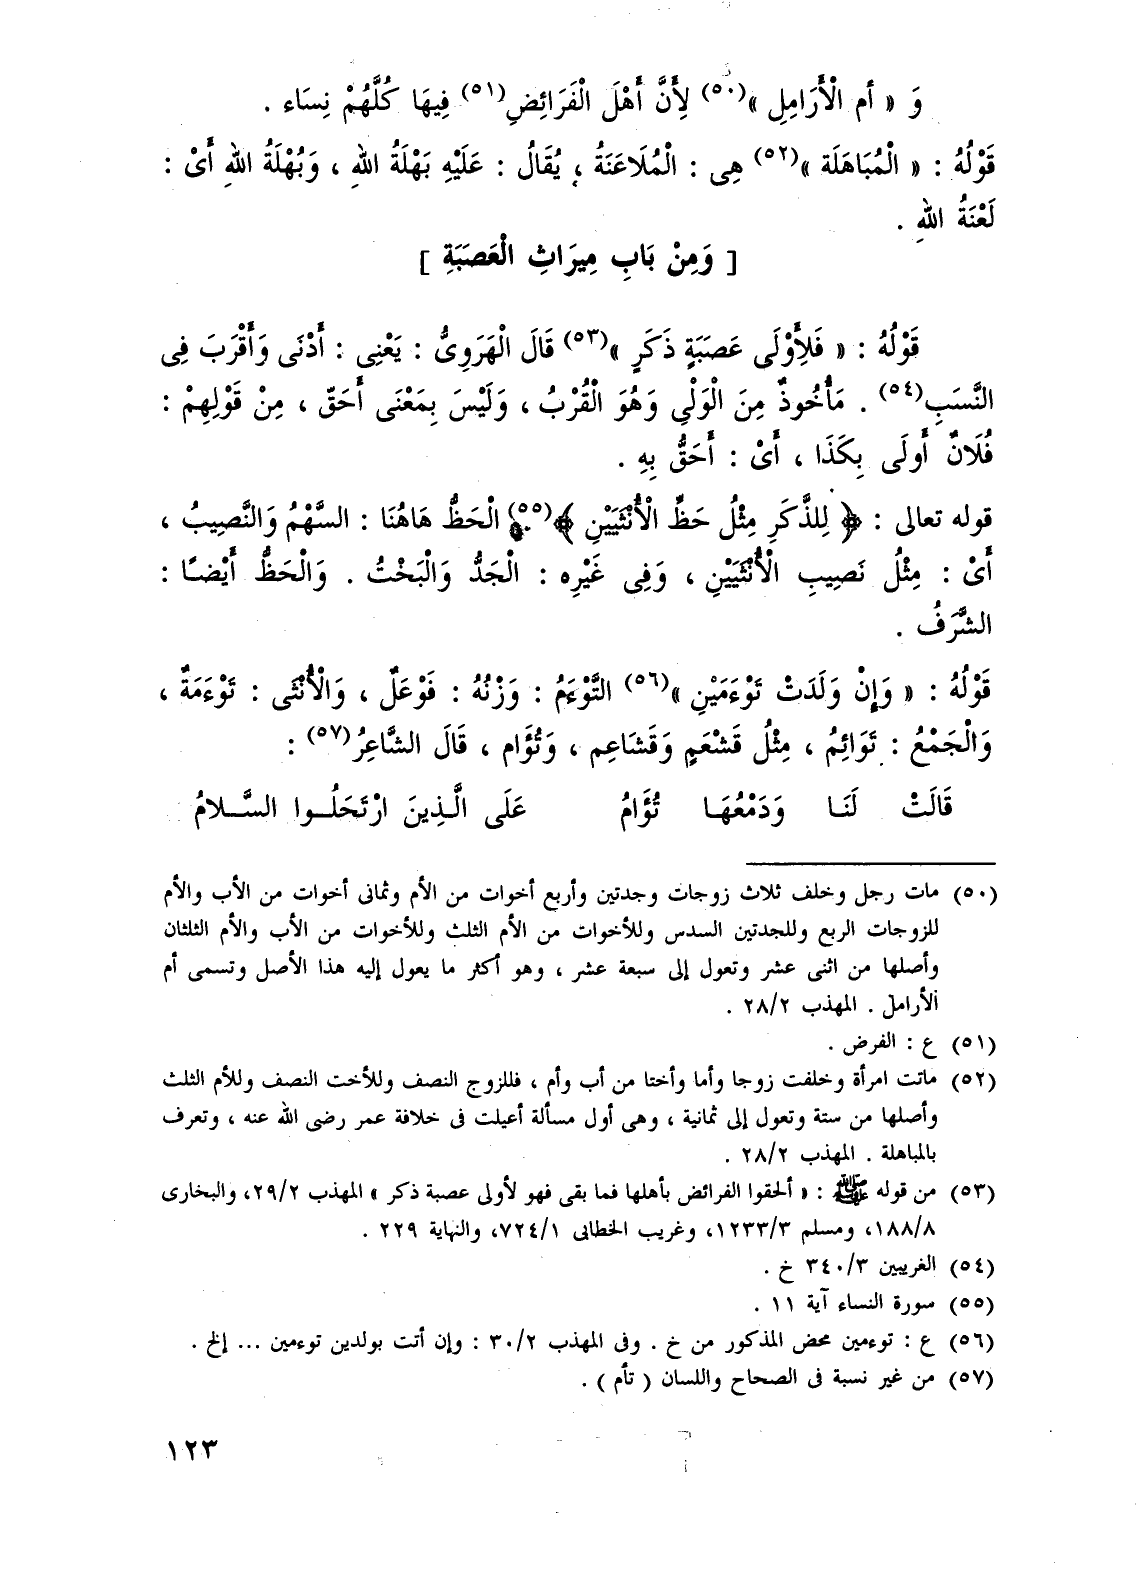 وَ « أم الْأَرَامِلِ »(٥٠) لِأَنَّ أَهْلَ الْفَرَائِضِ(٥١) فِيهَا كُلَّهُمْ نِسَاء .
قَوْلُهُ : « الْمُبَاهَلَة »(٥٢) هِى : الْمُلَاعَنَةُ ، يُقَالُ : عَلَيْهِ بَهْلَةُ اللهِ ، وَبُهْلَةُ اللهِ أَىْ :
لَعْنَةُ اللهِ .
[ وَمِنْ بَابِ مِيرَاثِ الْعَصَبَةِ ]
قَوْلُهُ : « فَلِأَوْلَى عَصَبَةٍ ذَكَرٍ »(٥٣) قَالَ الْهَرَوِىُّ : يَعْنِى : أَدْنَى وَأَقْرَبَ فِى
النَّسَبِ(٥٤) . مَأْخُوذٌ مِنَ الْوَلْىِ وَهُوَ الْقُرْبُ ، وَلَيْسَ بِمَعْنَى أَحَقّ ، مِنْ قَوْلِهِمْ :
فُلَانٌ أَولَى بِكَذَا ، أَىْ : أَحَقُّ بِهِ .
قوله تعالى : ﴿ لِلذَّكَرِ مِثْلُ حَظِّ الْأُنْثَيَيْنِ ﴾(٥٥) الْحَظُّ هَاهُنَا : السَّهْمُ وَالنَّصِيبُ ،
أَىْ : مِثْلُ نَصِيبِ الْأُنْثَيَيْنِ ، وَفِى غَيْرِه : الْجَدُّ وَالْبَخْتُ . وَالْحَظُّ أَيْضًا :
الشَّرَفُ .
قَوْلُهُ : « وَإِنْ وَلَدَتْ تَوْءَمَيْنِ »(٥٦) التَّوْءَمُ : وَزْنُهُ : فَوْعَلٌ ، وَالْأُنْثَى : تَوْءَمَةٌ ،
وَالْجَمْعُ : تَوَائِمُ ، مِثْلُ قَشْعَمٍ وَقَشَاعِم ، وَتُؤَام ، قَالَ الشَّاعِرُ(٥٧) :
قَالَتْ لَنَا وَدَمْعُهَا تُؤَامُ عَلَى الَّذِينَ ارْتَحَلُوا السَّلامُ
(٥٠) مات رجل وخلف ثلاث زوجات وجدتين وأربع أخوات من الأم وثمانى أخوات من الأب والأم
للزوجات الربع وللجدتين السدس وللأخوات من الأم الثلث وللأخوات من الأب والأم الثلثان
وأصلها من اثنى عشر وتعول إلى سبعة عشر ، وهو أكثر ما يعول إليه هذا الأصل وتسمى أم
الأرامل . المهذب ٢٨/٢ .
(٥١) ع : الفرض .
(٥٢) ماتت امرأة وخلفت زوجا وأما وأختا من أب وأم ، فللزوج النصف وللأخت النصف وللأم الثلث
وأصلها من ستة وتعول إلى ثمانية ، وهى أول مسألة أعيلت فى خلافة عمر رضى الله عنه ، وتعرف
بالمباهلة . المهذب ٢٨/٢ .
(٥٣) من قوله ﷺ : « ألحقوا الفرائض بأهلها فما بقى فهو لأولى عصبة ذكر » المهذب ٢٩/٢، والبخارى
١٨٨/٨، ومسلم ١٢٣٣/٣، وغريب الخطابى ٧٢٤/١، والنهاية ٢٢٩ .
(٥٤) الغريبين ٣٤٠/٣ خ .
(٥٥) سورة النساء آية ١١ .
(٥٦) ع : توءمين محض المذكور من خ . وفى المهذب ٣٠/٢ : وإن أتت بولدين توءمين ... إلخ .
(٥٧) من غير نسبة فى الصحاح واللسان ( تأم ) .
١٢٣